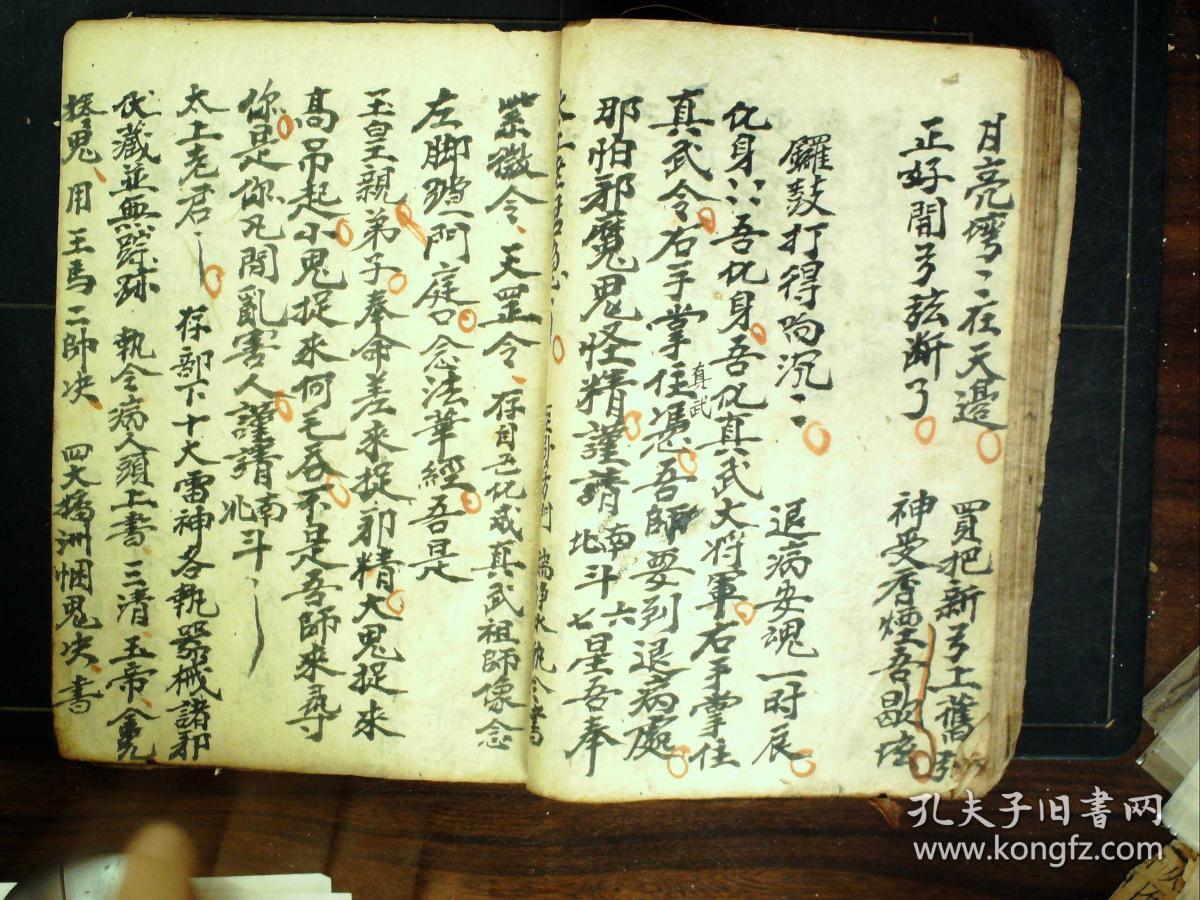 月亮彎〻在天邉 買把新弓上舊弦
正好開弓弦断了 神受香烟吾歇垓
鑼鼓打得响沉〻 退病安魂一时辰
化身〻吾化身吾化真武大将軍右手掌住
真武令右手掌住真武憑吾師要到退病處
那怕邪魔鬼怪精謹請南北斗六七星吾奉
紫微令、天罡令、存自己化成真武祖師像念
左脚踏一門庭口念法華經吾是
玉皇親弟子奉命差來捉邪精大鬼捉來
高吊起小鬼捉來何毛吞不是吾師來尋
你是你凡間亂害人謹請南北斗
太上老君 存部下十大雷神各執器械諸邪
伏藏並無踪跡 執令病人頭上書三清、玉帝、金光
捉鬼、用王馬二帥决、四大 洲捆鬼决、書
孔夫子旧書网
www.kongfz.com